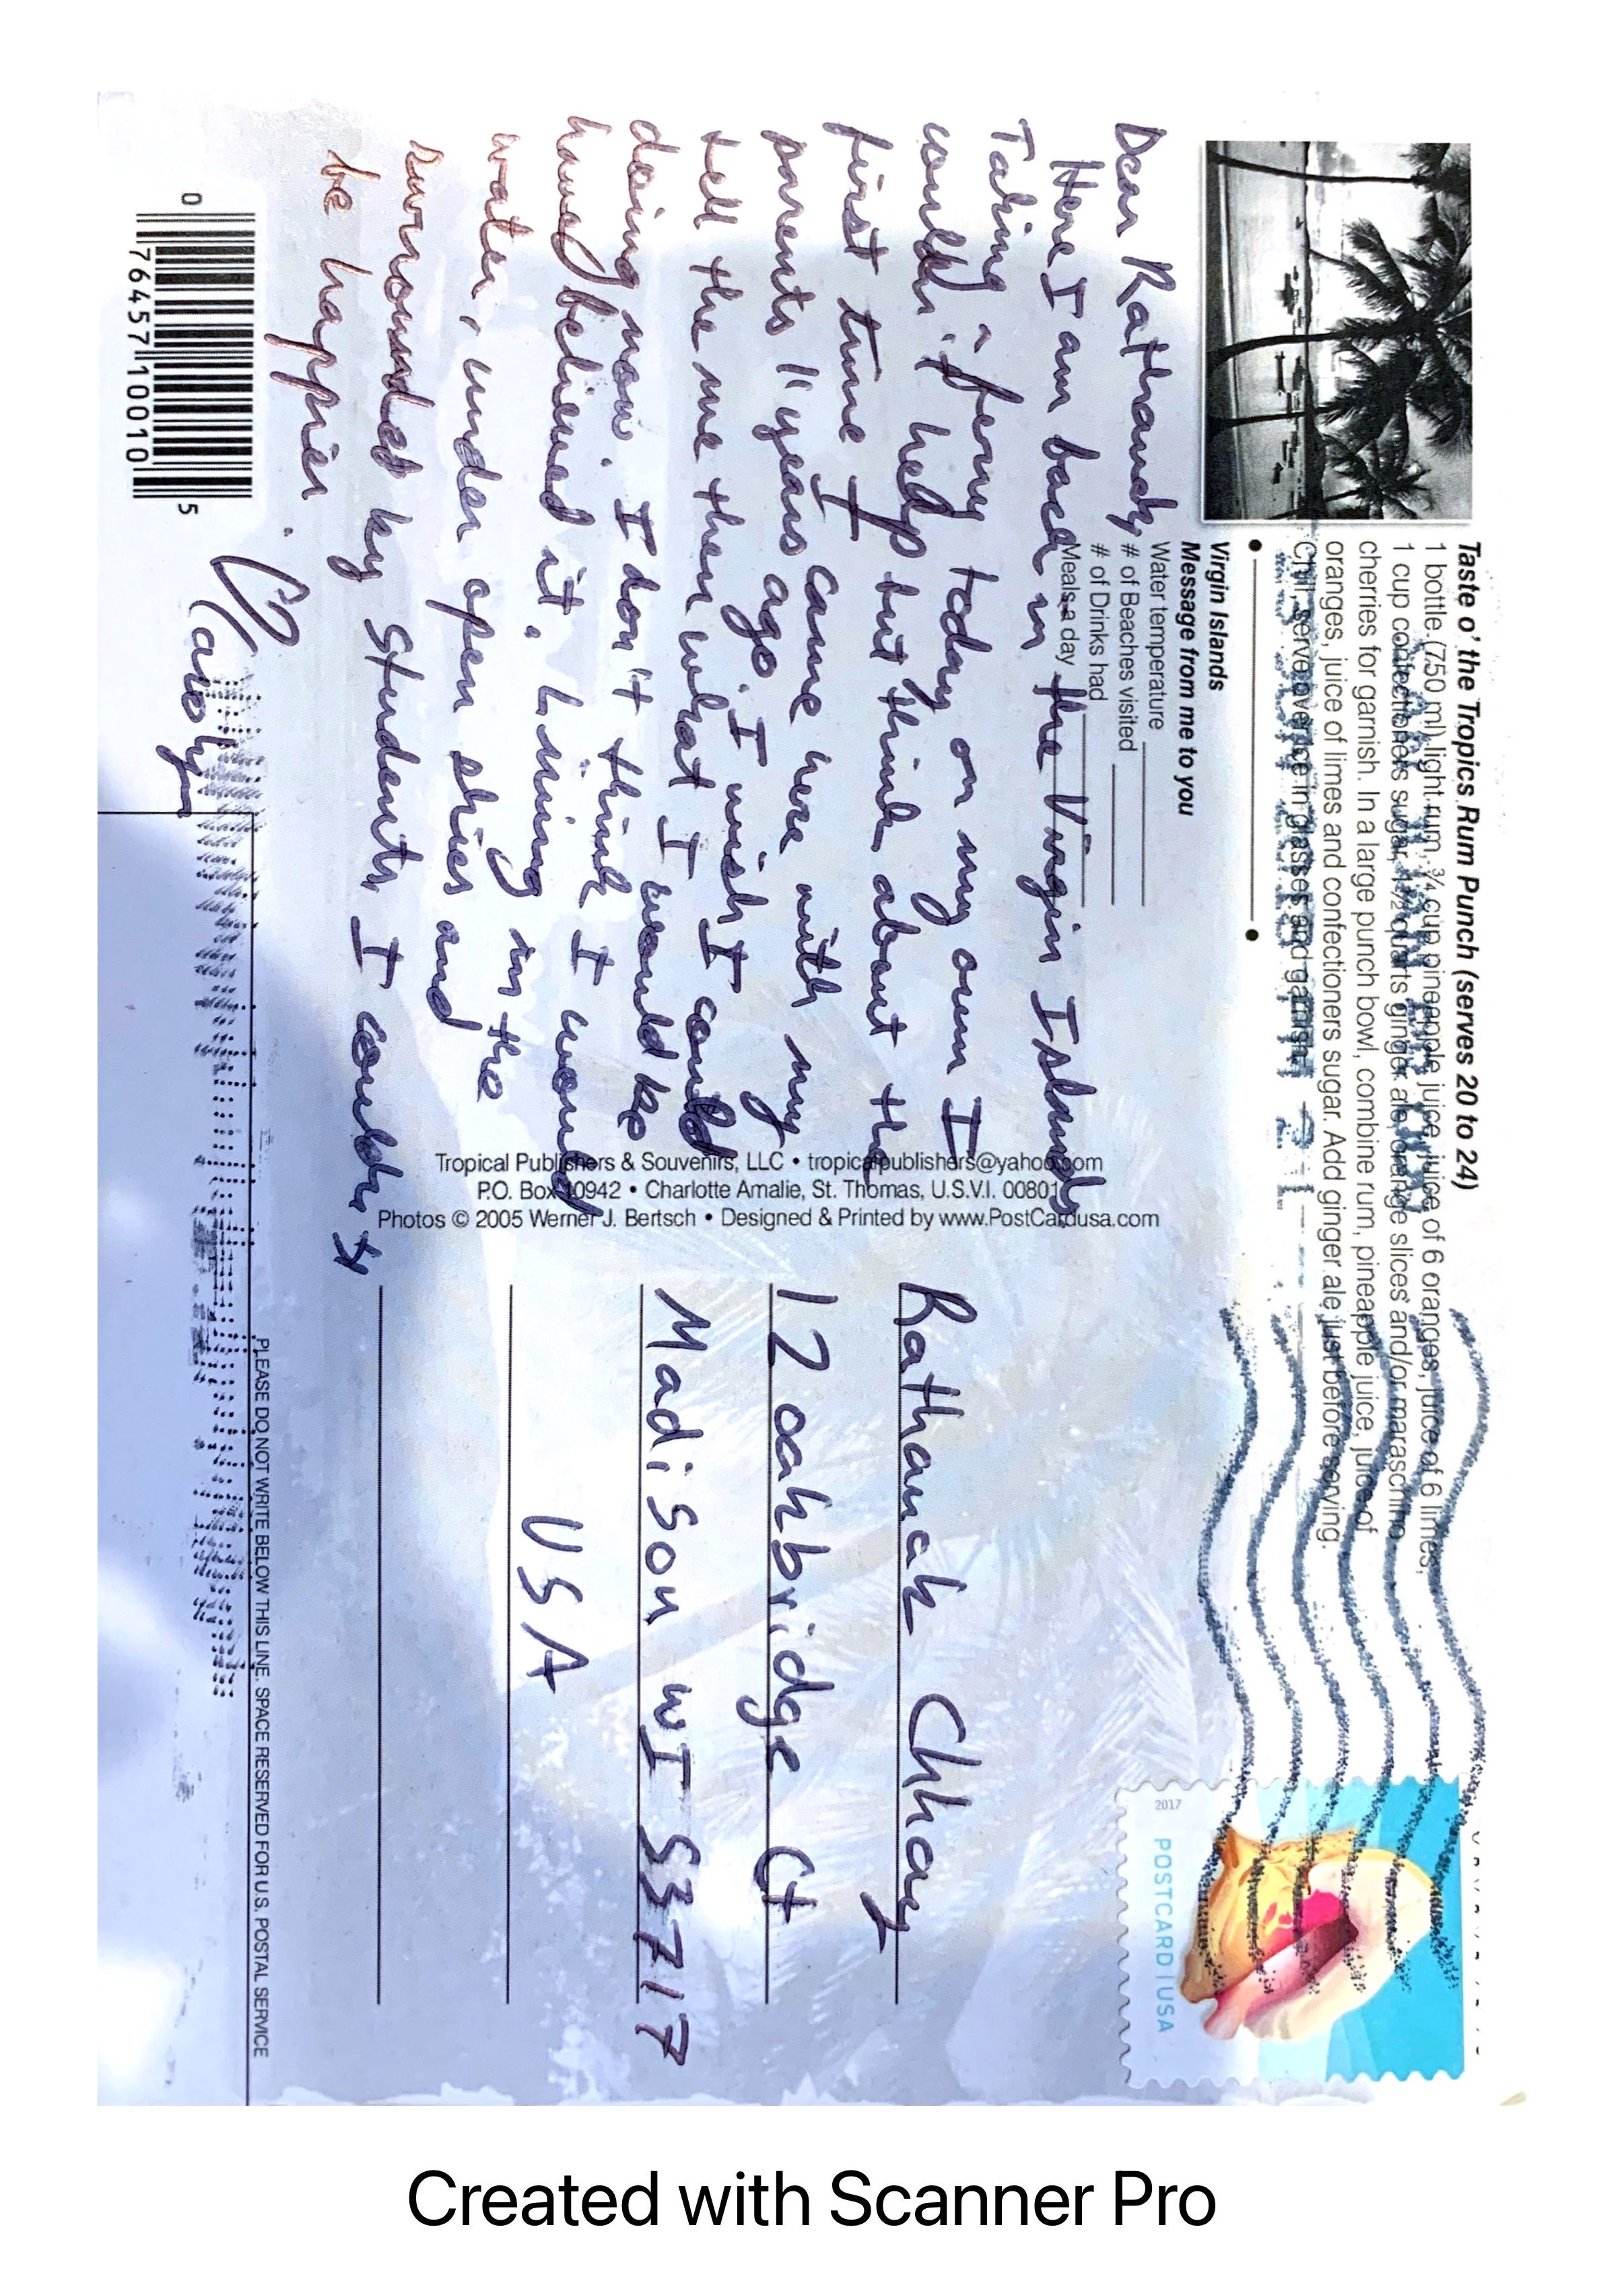 Taste o' the Tropics Rum Punch (serves 20 to 24)
1 bottle (750 ml) light rum, ¾ cup pineapple juice, juice of 6 oranges, juice of 6 limes,
1 cup confectioners sugar, ½ quarts ginger ale, orange slices and/or maraschino
cherries for garnish. In a large punch bowl, combine rum, pineapple juice, juice of
oranges, juice of limes and confectioners sugar. Add ginger ale just before serving.
Chill, serve over ice in glasses and garnish.
Virgin Islands
Message from me to you
Water temperature
# of Beaches visited
# of Drinks had
Meals a day
Dear Rathanak,
Here I am back in the Virgin Islands
Taking a ferry today on my own I
couldn't help but think about the
first time I came here with my
parents 11 years ago. I wish I could
tell the me then what I would be
doing now. I don't think I would
have believed it. Living in the
water, under open skies and
surrounded by students I couldn't
be happier.
Carolyn
Tropical Publishers & Souvenirs, LLC • tropicalpublishers@yahoo.com
P.O. Box 10942 • Charlotte Amalie, St. Thomas, U.S.V.I. 00801
Photos © 2005 Werner J. Bertsch • Designed & Printed by www.PostCardusa.com
Rathanak Chhay
12 oakbridge Ct
Madison WI 53717
USA
2017
POSTCARD | USA
PLEASE DO NOT WRITE BELOW THIS LINE. SPACE RESERVED FOR U.S. POSTAL SERVICE
0 76457 10010 5
Created with Scanner Pro